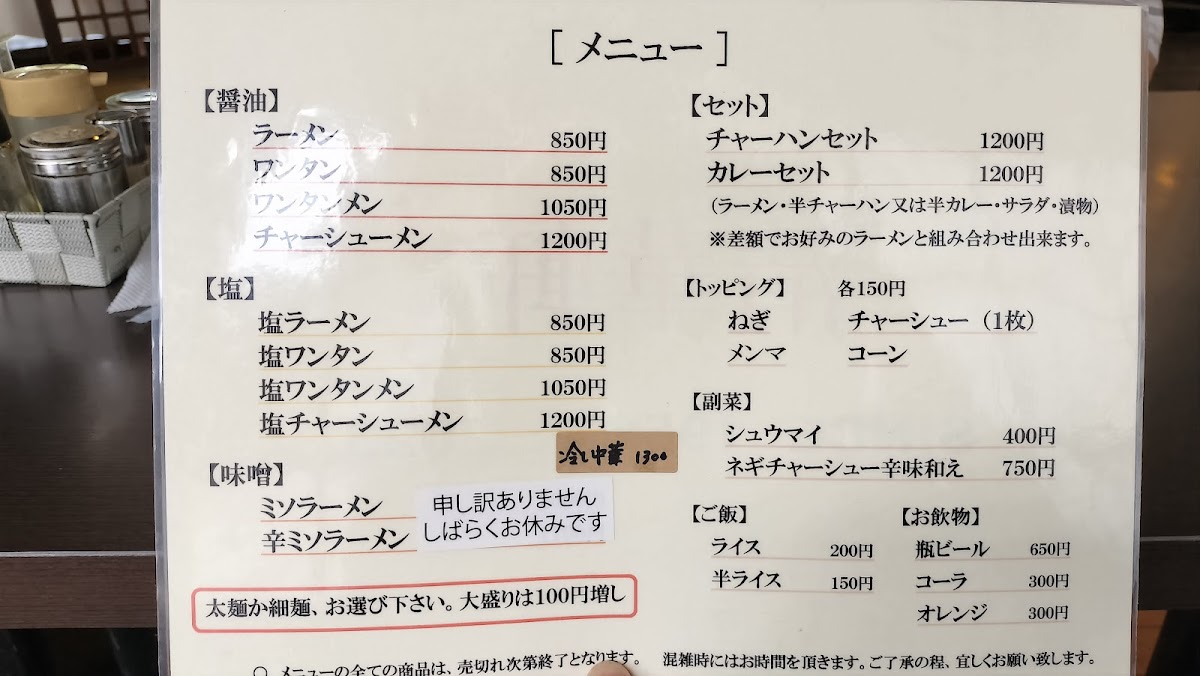 [ メニュー ]
【醤油】
ラーメン 850円
ワンタン 850円
ワンタンメン 1050円
チャーシューメン 1200円
【塩】
塩ラーメン 850円
塩ワンタン 850円
塩ワンタンメン 1050円
塩チャーシューメン 1200円
冷し中華 1300
【味噌】
ミソラーメン
辛ミソラーメン
申し訳ありません
しばらくお休みです
太麺か細麺、お選び下さい。大盛りは100円増し
【セット】
チャーハンセット 1200円
カレーセット 1200円
（ラーメン・半チャーハン又は半カレー・サラダ・漬物）
※差額でお好みのラーメンと組み合わせ出来ます。
【トッピング】 各150円
ねぎ チャーシュー（1枚）
メンマ コーン
【副菜】
シュウマイ 400円
ネギチャーシュー辛味和え 750円
【ご飯】
ライス 200円
半ライス 150円
【お飲物】
瓶ビール 650円
コーラ 300円
オレンジ 300円
○ メニューの全ての商品は、売切れ次第終了となります。 混雑時にはお時間を頂きます。ご了承の程、宜しくお願い致します。